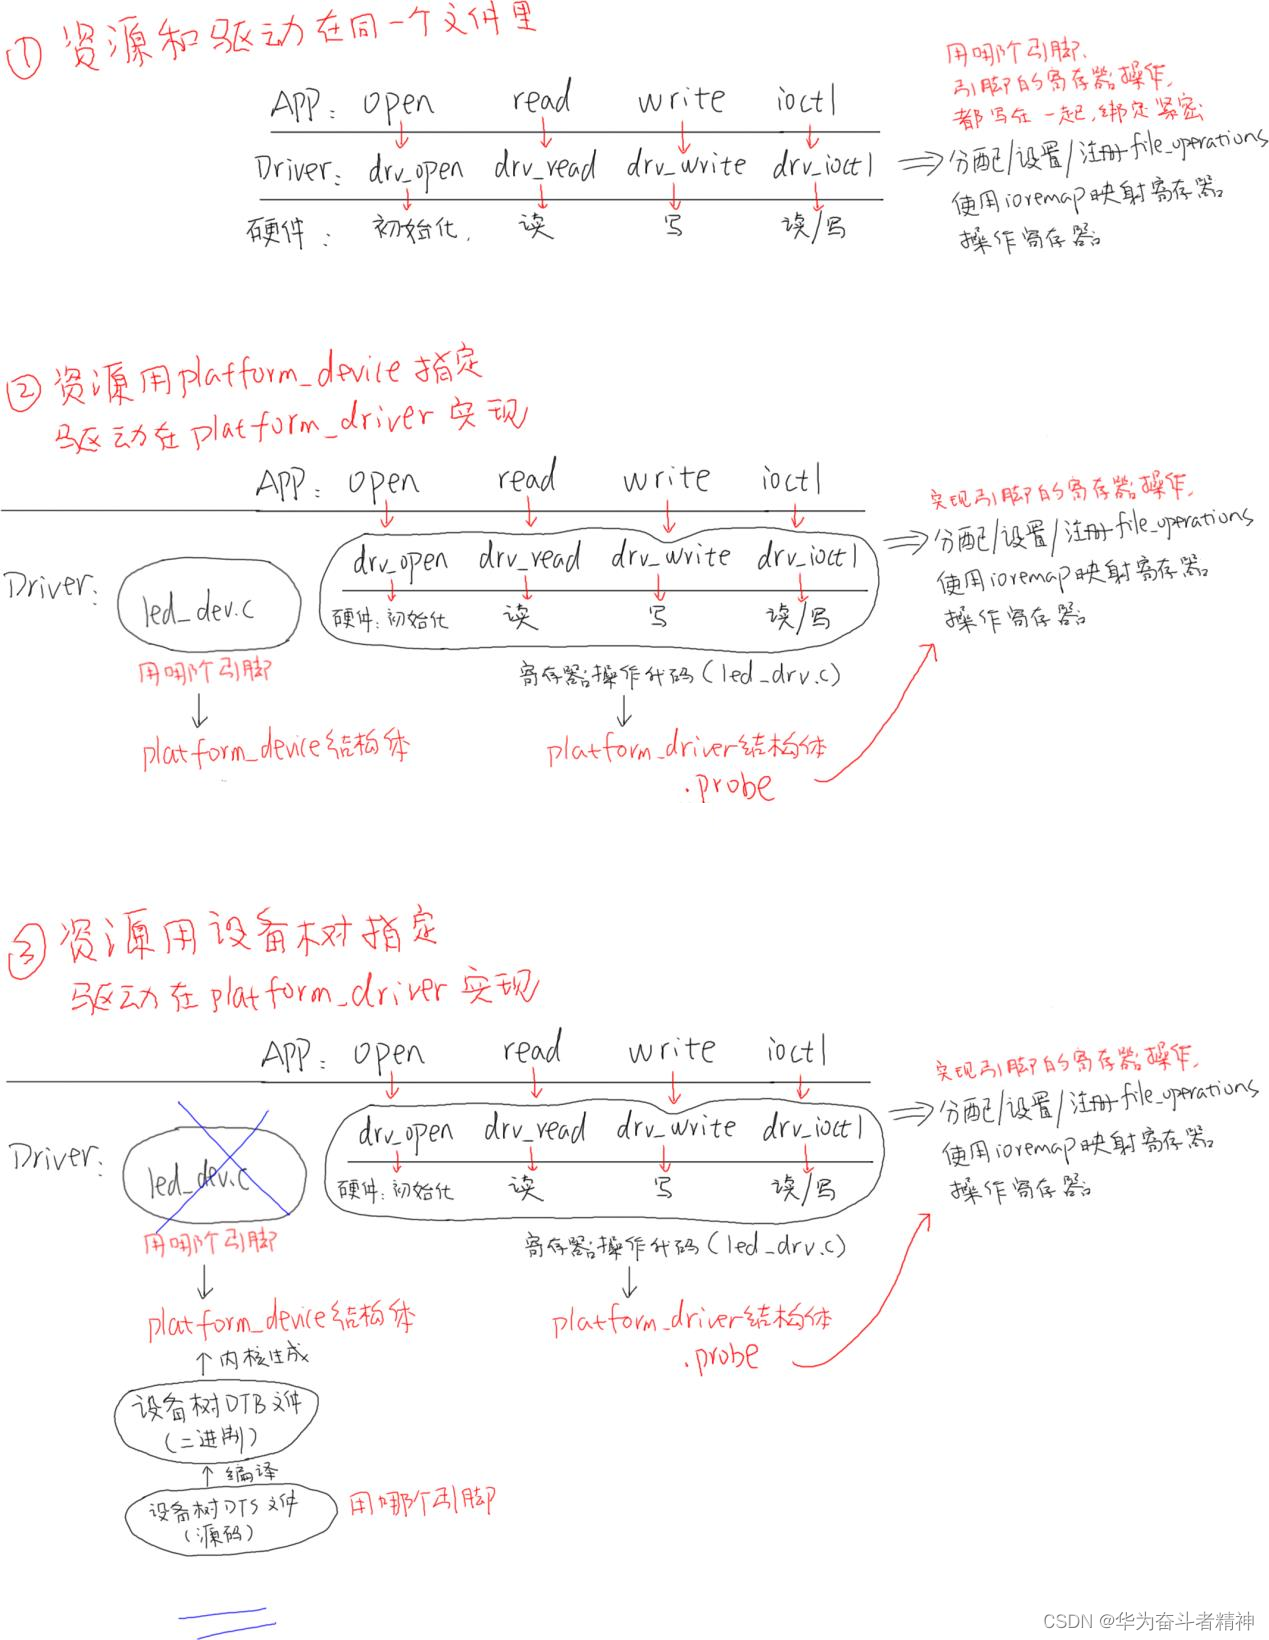 ① 资源和驱动在同一个文件里
用哪个引脚.
引脚的寄存器操作,
都写在一起,绑定紧密
APP: open read write ioctl
Driver: drv_open drv_read drv_write drv_ioctl
分配/设置/注册file_operations
使用ioremap映射寄存器
操作寄存器
硬件: 初始化. 读 写 读/写
② 资源用platform_device指定
驱动在platform_driver实现
APP: open read write ioctl
实现引脚的寄存器操作,
分配/设置/注册file_operations
使用ioremap映射寄存器
操作寄存器
Driver: led_dev.c
drv_open drv_read drv_write drv_ioctl
硬件:初始化 读 写 读/写
用哪个引脚
寄存器操作代码(led_drv.c)
platform_device结构体
platform_driver结构体
.probe
③ 资源用设备树指定
驱动在platform_driver实现
APP: open read write ioctl
实现引脚的寄存器操作,
分配/设置/注册file_operations
使用ioremap映射寄存器
操作寄存器
Driver: led_dev.c
drv_open drv_read drv_write drv_ioctl
硬件:初始化 读 写 读/写
用哪个引脚
寄存器操作代码(led_drv.c)
platform_device结构体
platform_driver结构体
.probe
内核生成
设备树DTB文件
(二进制)
编译
设备树DTS文件
(源码)
用哪个引脚
CSDN @华为奋斗者精神